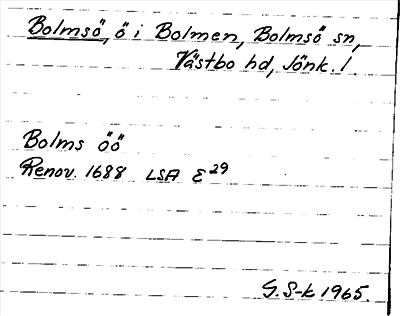 Bolmsö, ö i Bolmen, Bolmsö sn,
Västbo hd, Jönk. l
Bolms öö
Renov. 1688 LSA E29
G. S-k 1965.